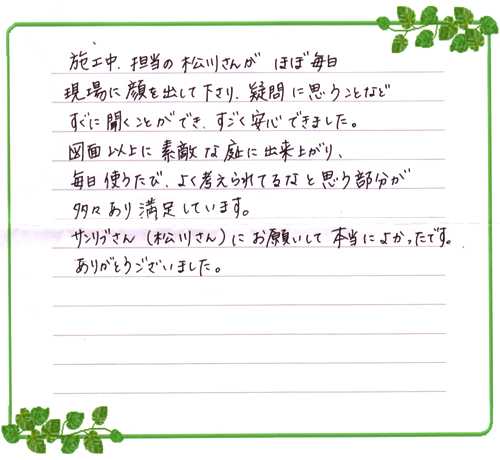 施工中、担当の松川さんが ほぼ毎日
現場に顔を出して下さり、疑問に思うことなど
すぐに聞くことができ、すごく安心できました。
図面以上に素敵な庭に出来上がり、
毎日使うたび、よく考えられてるなと思う部分が
多々あり満足しています。
サンリブさん（松川さん）にお願いして本当によかったです。
ありがとうございました。